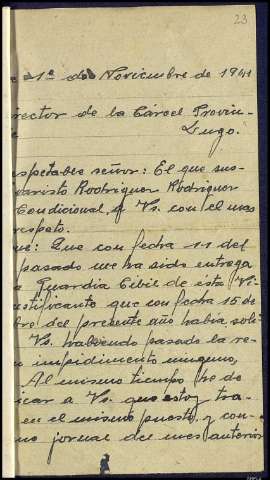 23
e 1º de Noviembre de 1941
irector de la Cárcel Provin-
Lugo.
spetable señor: El que sus-
varisto Rodriguez Rodriguez
Condicional, a Vs. con el mas
respeto.
ue: Que con fecha 11 del
pasado me ha sido entrega
a Guardia Civil de esta Vi
ustificante que con fecha 15 de
bre del presente año habia soli
Vs. habiendo pasado la re
n impidimento ninguno,
Al mismo tiempo he de
icar a Vs. que estoy tra-
en el mismo puesto y con
mo jornal del mes anterior